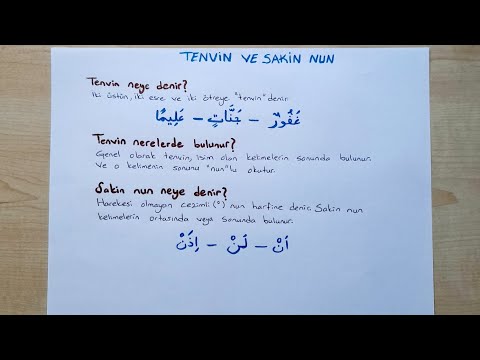 TENVİN VE SAKİN NUN
Tenvin neye denir?
İki üstün, iki esre ve iki ötreye "tenvin" denir.
غَفُورٌ – جَنَّاتٍ – عَلِيمًا
Tenvin nerelerde bulunur?
Genel olarak tenvin, isim olan kelimelerin sonunda bulunur.
Ve o kelimenin sonunu "nun"lu okutur.
Sakin nun neye denir?
Harekesi olmayan cezimli (ْ) nun harfine denir. Sakin nun
kelimelerin ortasında veya sonunda bulunur.
اَنْ – لَنْ – اِذَنْ